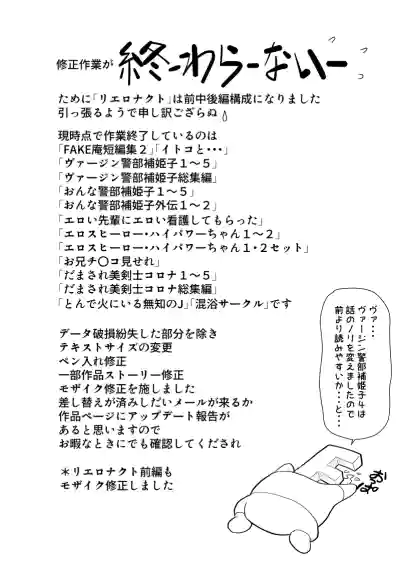 修正作業が
終ーわらーないー
ために「リエロナクト」は前中後編構成になりました
引っ張るようで申し訳ござらぬ
現時点で作業終了しているのは
「FAKE庵短編集2」「イトコと・・・」
「ヴァージン警部補姫子1〜5」
「ヴァージン警部補姫子総集編」
「おんな警部補姫子1〜5」
「おんな警部補姫子外伝1〜2」
「エロい先輩にエロい看護してもらった」
「エロスヒーロー・ハイパワーちゃん1〜2」
「エロスヒーロー・ハイパワーちゃん1・2セット」
「お兄チ〇コ見せれ」
「だまされ美剣士コロナ1〜5」
「だまされ美剣士コロナ総集編」
「とんで火にいる無知のJ」「混浴サークル」です
データ破損紛失した部分を除き
テキストサイズの変更
ペン入れ修正
一部作品ストーリー修正
モザイク修正を施しました
差し替えが済みしだいメールが来るか
作品ページにアップデート報告が
あると思いますので
お暇なときにでも確認してくだされ
*リエロナクト前編も
モザイク修正しました
ヴァ・・・
ヴァージン警部補姫子4は
話のノリを変えましたので
前より読みやすいか・・・と・・・